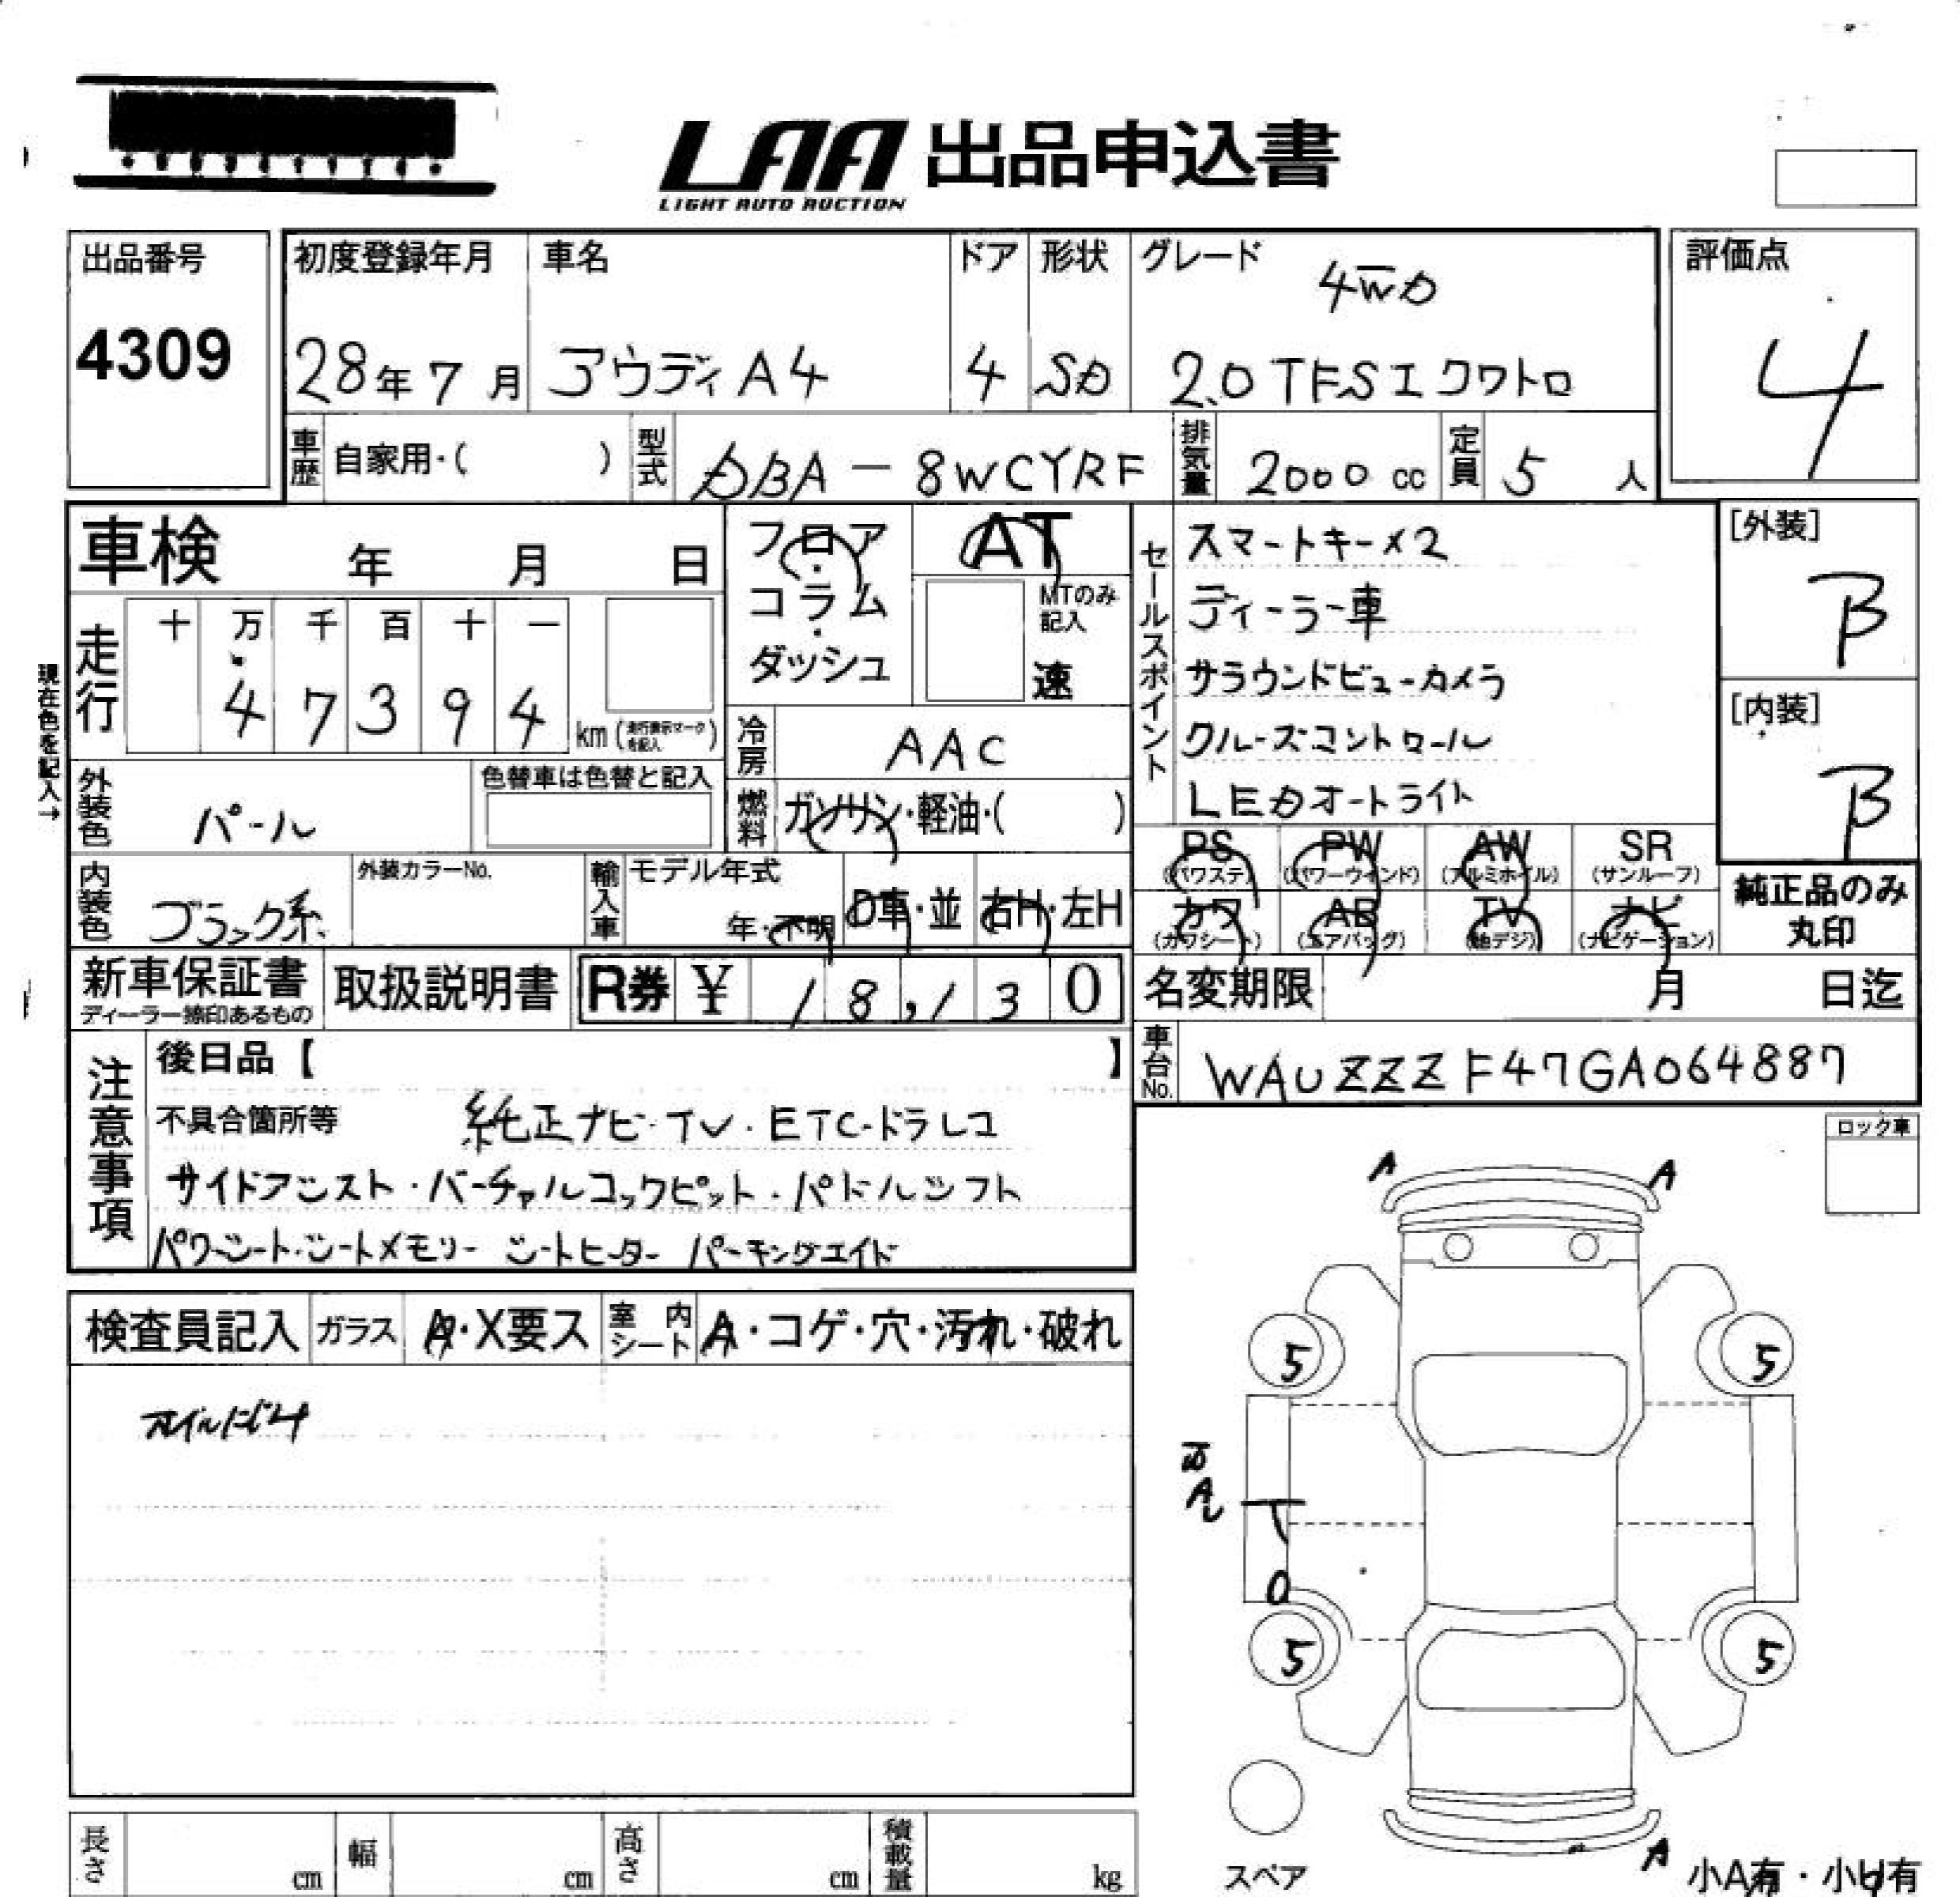 LAA 出品申込書
LIGHT AUTO AUCTION
出品番号
4309
初度登録年月
28年7月
車名
アウディA4
ドア
4
形状
SD
グレード
4WD
2.0 TFSI クワトロ
評価点
4
車歴 自家用・( )
型式 DBA-8WCYRF
排気量 2000 cc
定員 5 人
車検 年 月 日
走行 十 万 千 百 十 一
4 7 3 9 4 km (走行表示マークを記入)
現在色を記入→
フロア・コラム・ダッシュ
AT
MTのみ記入
速
冷房 AAC
燃料 ガソリン・軽油・( )
セールスポイント
スマートキー×2
ディーラー車
サラウンドビューカメラ
クルーズコントロール
LEDオートライト
[外装]
B
[内装]
B
外装色 パール
色替車は色替と記入
内装色 ブラック系
外装カラーNo.
輸入車 モデル年式
年・不明
D車・並 右H・左H
PS (パワステ) PW (パワーウインド) AW (アルミホイル) SR (サンルーフ)
カワ (カワシート) AB (エアバッグ) TV (地デジ) ナビ (ナビゲーション)
純正品のみ
丸印
新車保証書
ディーラー捺印あるもの
取扱説明書
R券 ¥ 18,130
名変期限 月 日迄
車台No. WAUZZZF47GA064887
注意事項
後日品【 】
不具合箇所等 純正ナビ・TV・ETC・ドラレコ
サイドアシスト・バーチャルコックピット・パドルシフト
パワーシート・シートメモリー シートヒーター パーキングエイド
ロック車
A A
検査員記入 ガラス A・X要ス 室内シート A・コゲ・穴・汚れ・破れ
オイルにじみ
5 5
5 5
スペア
A
小A有・小U有
長さ cm 幅 cm 高さ cm 積載量 kg